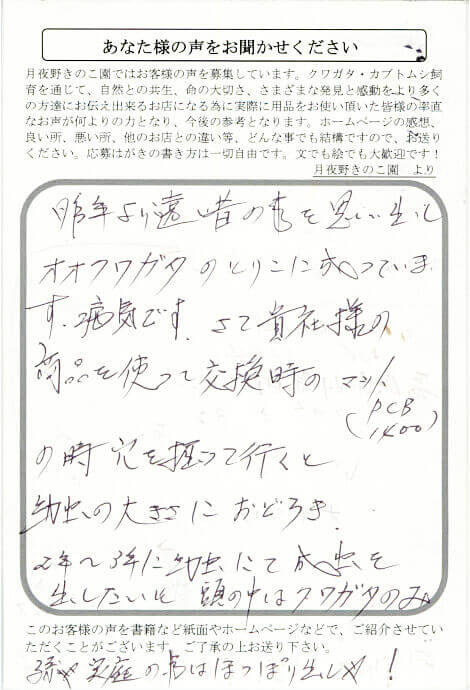 あなた様の声をお聞かせください
月夜野きのこ園ではお客様の声を募集しています。クワガタ・カブトムシ飼
育を通じて、自然との共生、命の大切さ、さまざまな発見と感動をより多く
の方達にお伝え出来るお店になる為に実際に用品をお使い頂いた皆様の率直
なお声が何よりの力となり、今後の参考となります。ホームページの感想、
良い所、悪い所、他のお店との違い等、どんな事でも結構ですので、お送り
ください。応募はがきの書き方は一切自由です。文でも絵でも大歓迎です！
月夜野きのこ園 より
昨年より遠い昔の事を思い出し
オオクワガタのとりこに成っていま
す.病気です.さて貴社様の
商品を使って交換時のマット
(PCB
1400)
の時穴を掘って行くと
幼虫の大きさにおどろき.
2年〜3年に幼虫にて成虫を
出したいと 頭の中はクワガタのみ
このお客様の声を書籍など紙面やホームページなどで、ご紹介させていた
だくことがございます。ご了承の上お送り下さい。
家庭の事はほっぽり出し !